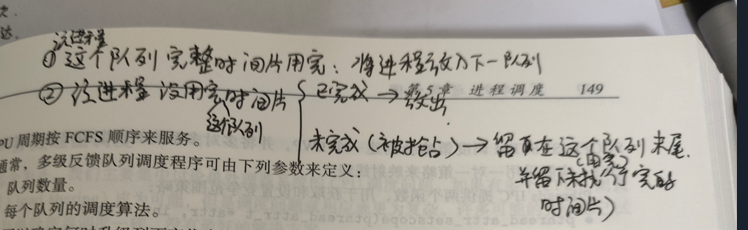 该进程
① 这个队列完整时间片用完：将进程放入下一队列
② 该进程没用完时间片 { 已完成→移出
这个队列
第5章 进程调度 149
未完成（被抢占）→留在这个队列末尾.
PU 周期按 FCFS 顺序来服务。
通常，多级反馈队列调度程序可由下列参数来定义：
并留下未执行完的
时间片）
队列数量。
每个队列的调度算法。